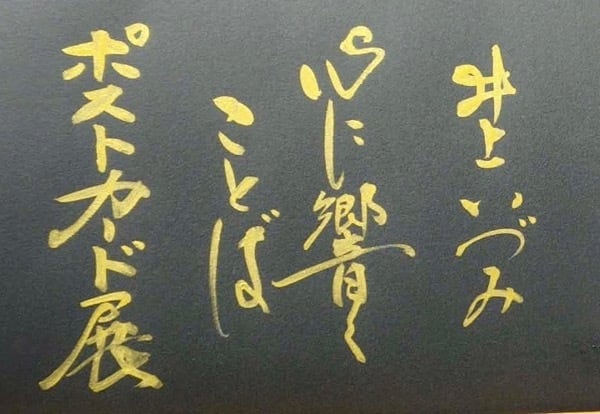 井上いづみ
心に響く
ことば
ポストカード展